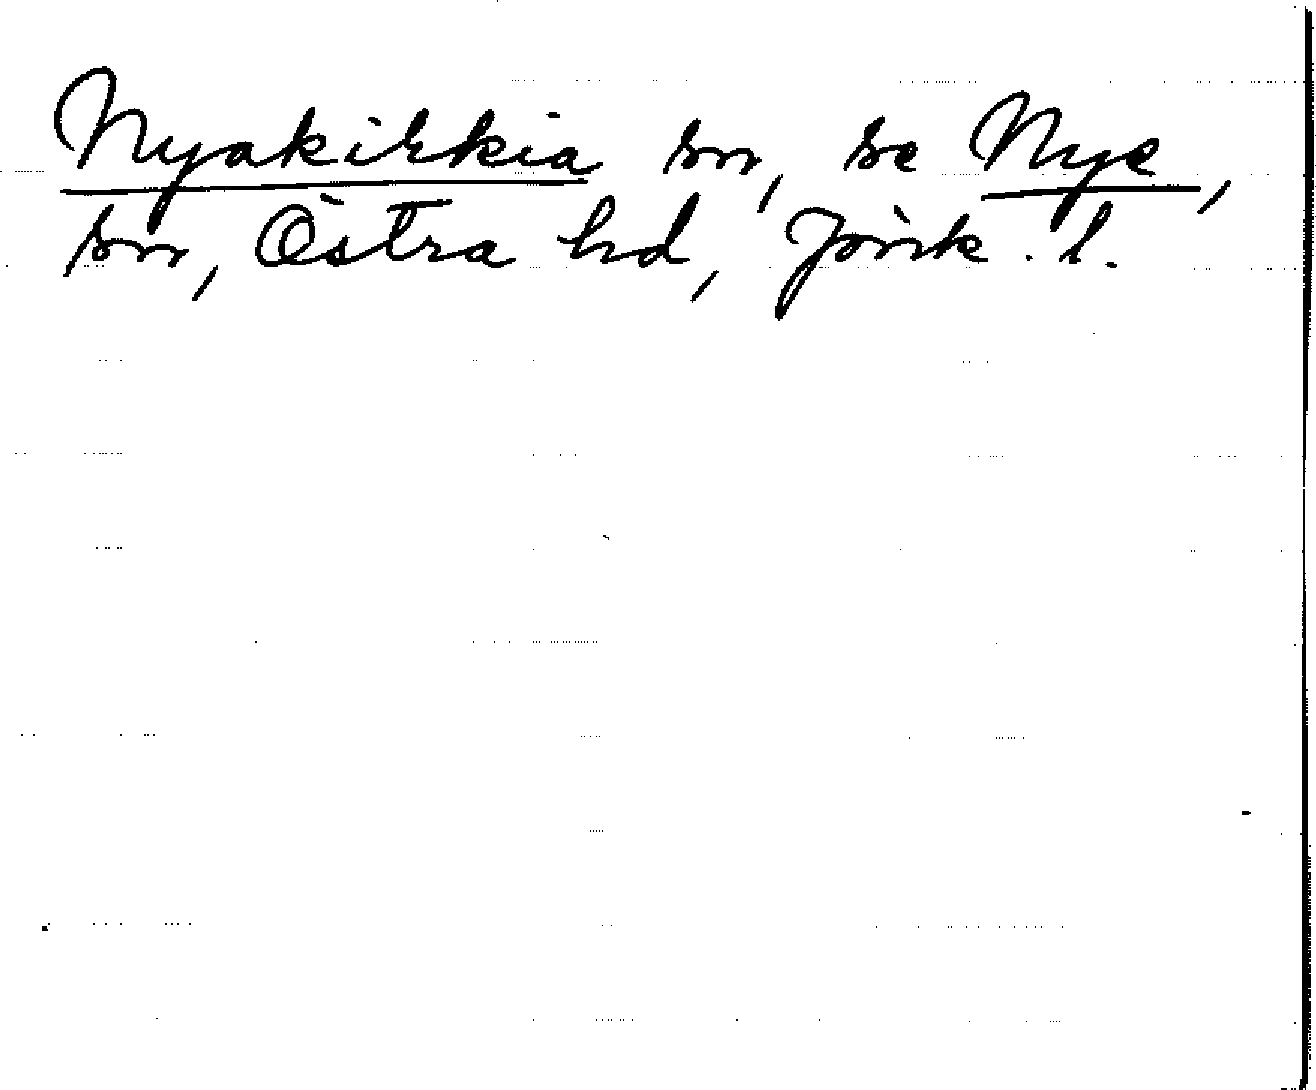 Nyakirkia sn, se Nye,
sn, Östra hd, Jönk. l.